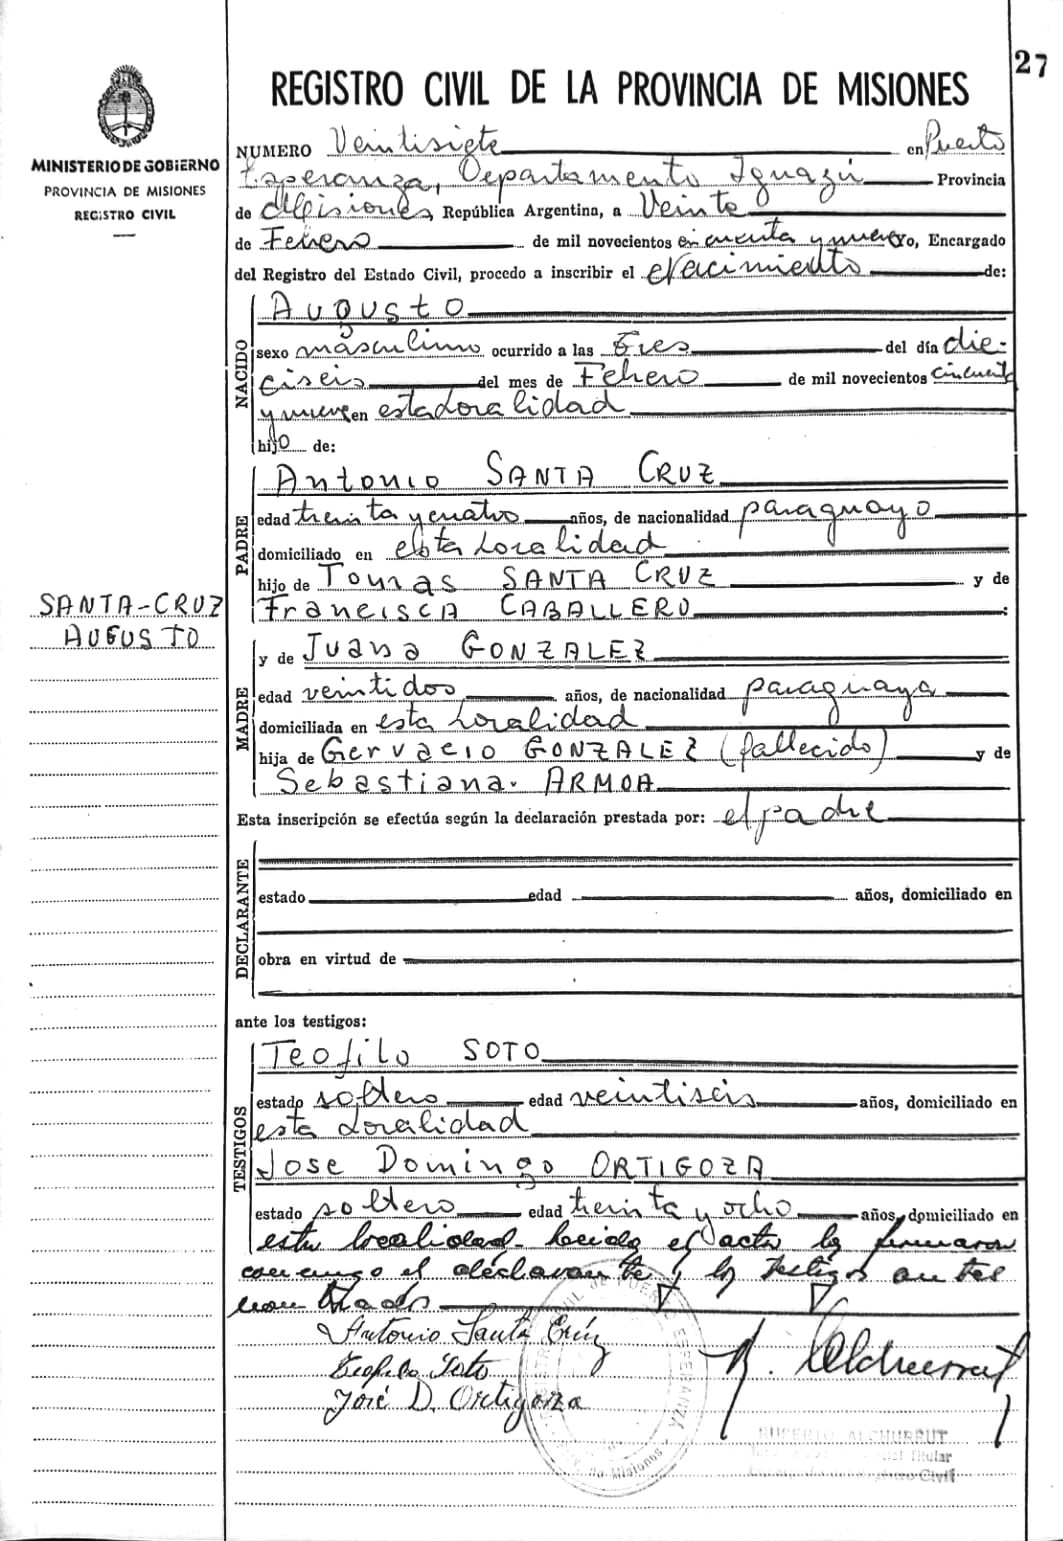 27
REGISTRO CIVIL DE LA PROVINCIA DE MISIONES
MINISTERIO DE GOBIERNO
PROVINCIA DE MISIONES
REGISTRO CIVIL
NUMERO Veintisiete en Puerto
Esperanza, Departamento Iguazú Provincia
de Misiones, República Argentina, a Veinte
de Febrero de mil novecientos cincuenta y nueve yo, Encargado
del Registro del Estado Civil, procedo a inscribir el Nacimiento de:
NACIDO
Augusto
sexo masculino ocurrido a las tres del día die-
ciseis del mes de Febrero de mil novecientos cincuenta
y nueve en esta localidad
hijo de:
PADRE
Antonio SANTA CRUZ
edad treinta y cuatro años, de nacionalidad paraguayo
domiciliado en esta localidad
hijo de Tomas SANTA CRUZ y de
Francisca CABALLERO :
SANTA-CRUZ
AUGUSTO
MADRE
y de Juana GONZALEZ
edad veintidos años, de nacionalidad paraguaya
domiciliada en esta localidad
hija de Gervacio GONZALEZ (fallecido) y de
Sebastiana ARMOA
Esta inscripción se efectúa según la declaración prestada por: el padre
DECLARANTE
estado edad años, domiciliado en
obra en virtud de
ante los testigos:
TESTIGOS
Teofilo SOTO
estado soltero edad veintiseis años, domiciliado en
esta localidad
Jose Domingo ORTIGOZA
estado soltero edad treinta y ocho años, domiciliado en
esta localidad. Leida el acta la firmaron
conmigo el declarante y los testigos antes
nombrados
Antonio Santa Cruz
Teofilo Soto
José D. Ortigoza
R. Alchurrut
RUPERTO ALCHURRUT
Titular
Registro Civil